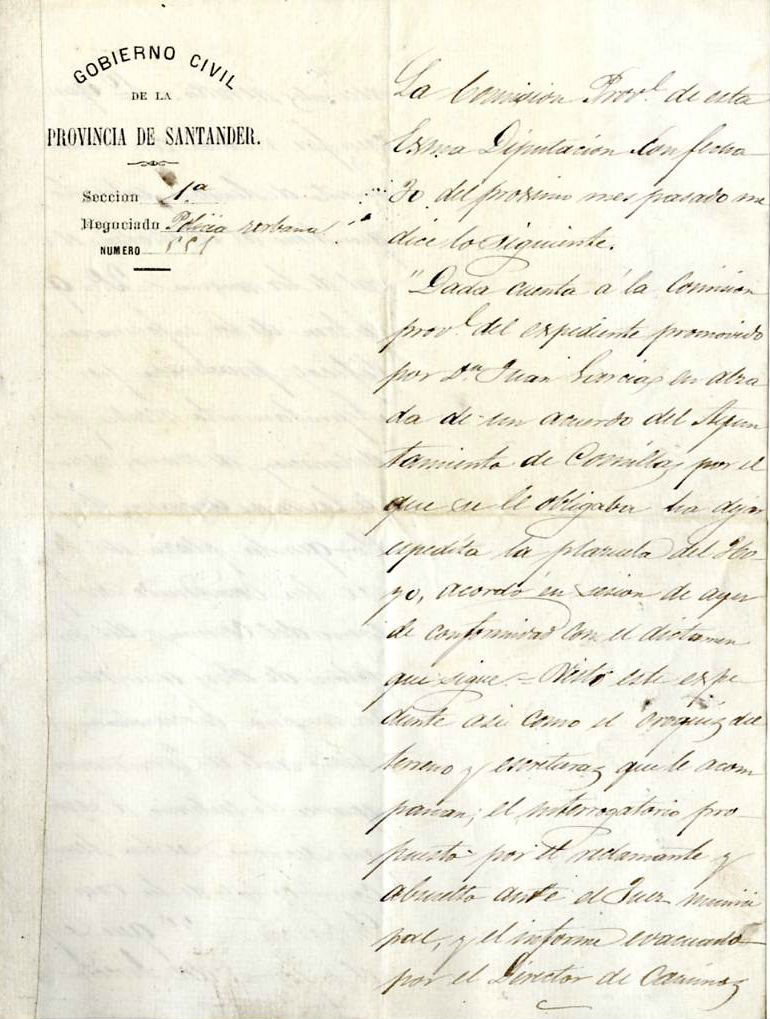 GOBIERNO CIVIL
DE LA
PROVINCIA DE SANTANDER.
Seccion 1.ª
Negociado Policia urbana
NUMERO 551
La Comision Prov.l de esta
Exma Diputacion con fecha
30 del proximo mes pasado me
dice lo siguiente.
"Dada cuenta á la Comision
prov.l del expediente promovido
por Dn Juan Garcia, en alza
da de un acuerdo del Ayun
tamiento de Comillas por el
que se le obligaba ha dejar
espedita la plazuela del Ho-
yo, acordó en sesion de ayer
de conformidad con el dictamen
que sigue.= Visto este expe
diente asi como el croquis del
terreno y escrituras que le acom
pañan; el interrogatorio pro
puesto por el reclamante y
absuelto ante el Juez munici
pal, y el informe evacuado
por el Director de Caminos